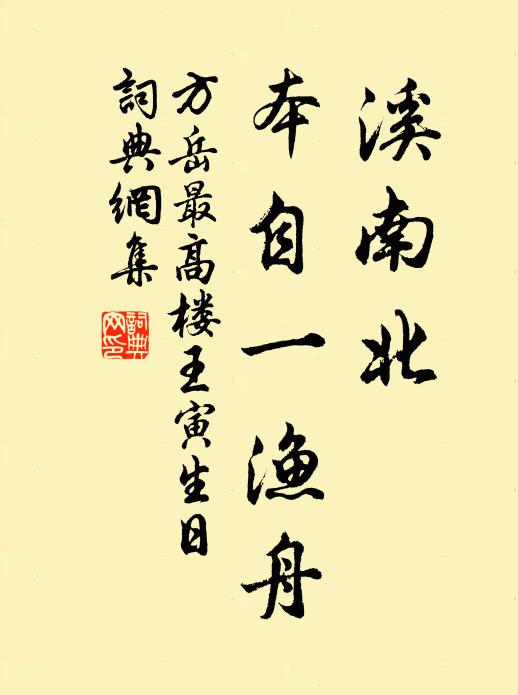 溪南北
本自一漁舟
方岳最高楼王寅生日
詞典網集
詞典網印